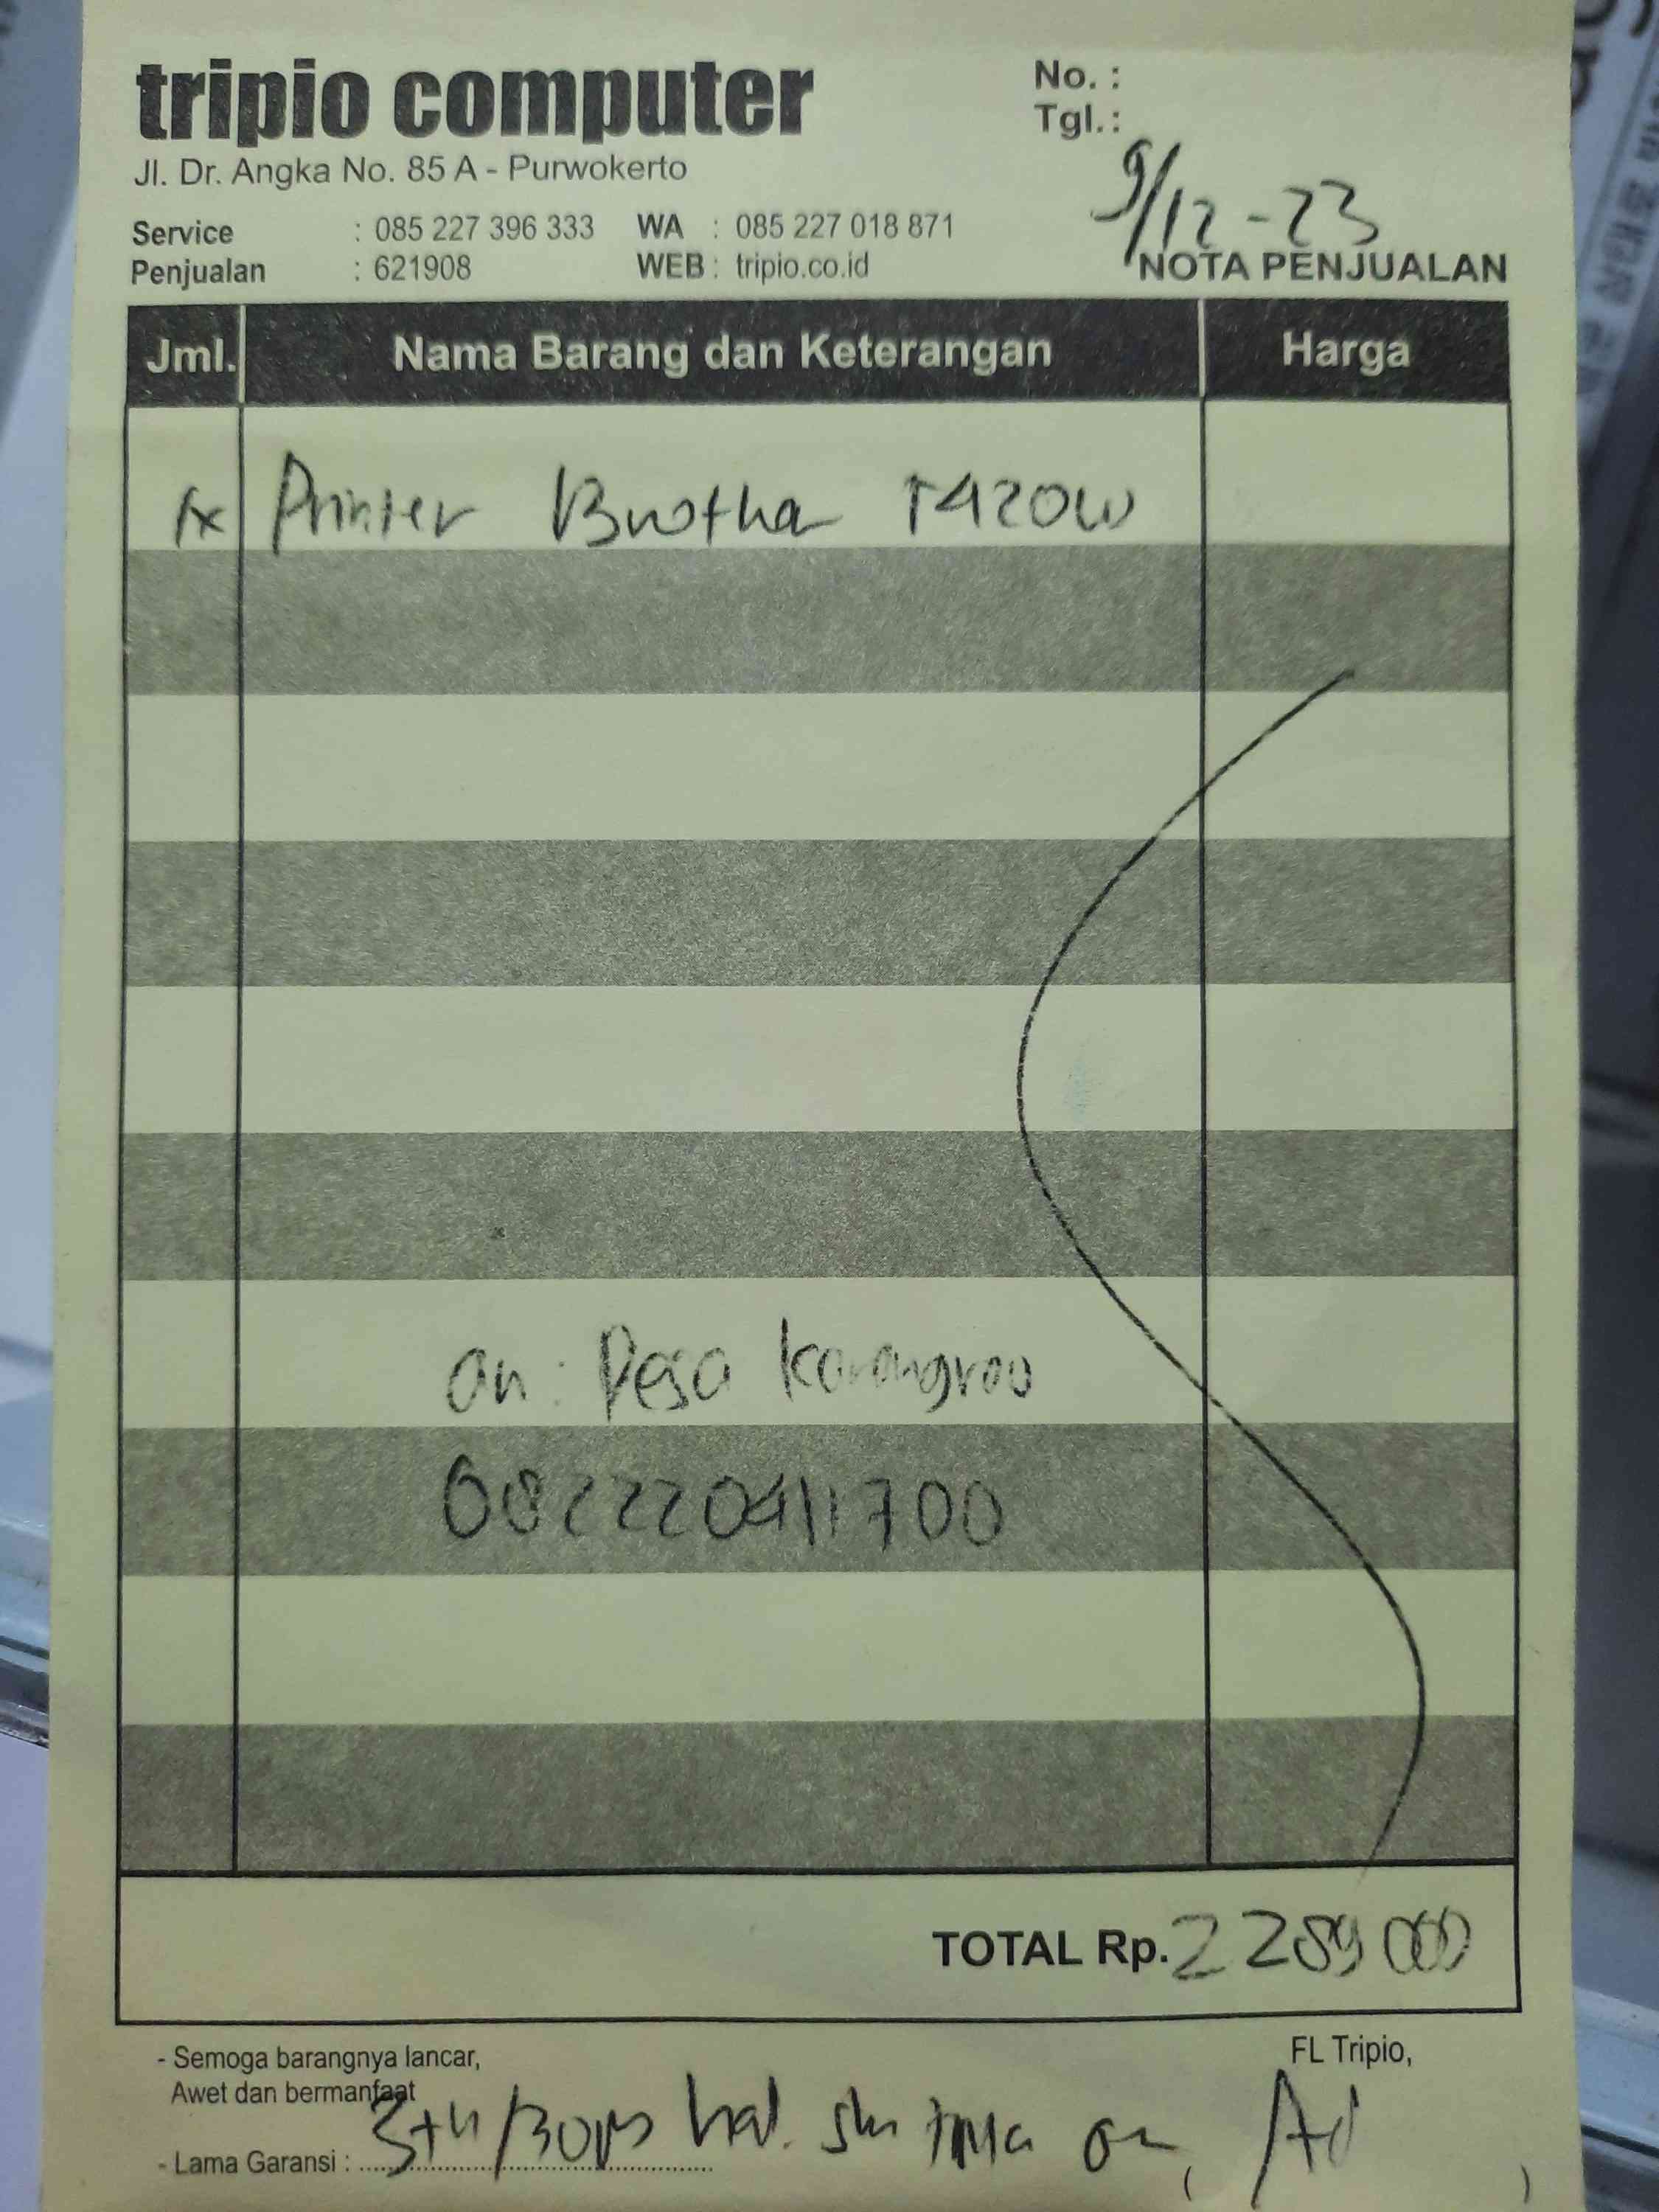 tripio computer
Jl. Dr. Angka No. 85 A - Purwokerto
No. :
Tgl. : 9/12 - 23
Service : 085 227 396 333 WA : 085 227 018 871
Penjualan : 621908 WEB : tripio.co.id
NOTA PENJUALAN
Jml. Nama Barang dan Keterangan Harga
1x Printer Brother T420W
an : Desa
082220411700
TOTAL Rp. 2289000
- Semoga barangnya lancar,
Awet dan bermanfaat
FL Tripio,
- Lama Garansi : 3th/30